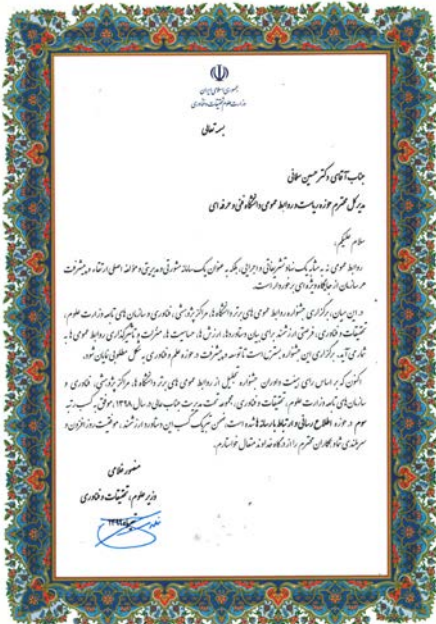 جمهوری اسلامی ایران
وزارت علوم، تحقیقات و فناوری
بسمه تعالی
جناب آقای دکتر حسین سلمانی
مدیر کل محترم حوزه ریاست و روابط عمومی دانشگاه فنی و حرفه ای
سلام علیکم؛
روابط عمومی نه به مثابه یک نهاد تشریفاتی و اجرایی، بلکه به عنوان یک سامانه مشورتی و مدیریتی و مؤلفه اصلی ارتقاء و پیشرفت
هر سازمان از جایگاه ویژه ای برخوردار است.
در این میان، برگزاری جشنواره روابط عمومی های برتر دانشگاه ها، مراکز پژوهشی، فناوری و سازمان های تابعه وزارت علوم،
تحقیقات و فناوری، فرصتی ارزشمند برای بیان دستاوردها، ارزش ها، حساسیت ها، معرفت و تأثیرگذاری روابط عمومی ها به
شمار می آید. برگزاری این جشنواره بستری است تا توسعه و پیشرفت در حوزه علم و فناوری به شکل مطلوبی نمایان شود.
اکنون که بر اساس رای هیئت داوران جشنواره تجلیل از روابط عمومی های برتر دانشگاه ها، مراکز پژوهشی، فناوری و
سازمان های تابعه وزارت علوم، تحقیقات و فناوری، مجموعه تحت مدیریت جناب عالی در سال ۱۳۹۸، موفق به کسب رتبه
سوم در حوزه اطلاع رسانی و ارتباط با رسانه ها شده است، ضمن تبریک کسب این دستاورد ارزشمند، موفقیت روزافزون و
سربلندی شما و همکاران محترم را از درگاه خداوند متعال خواستارم.
منصور غلامی
وزیر علوم، تحقیقات و فناوری